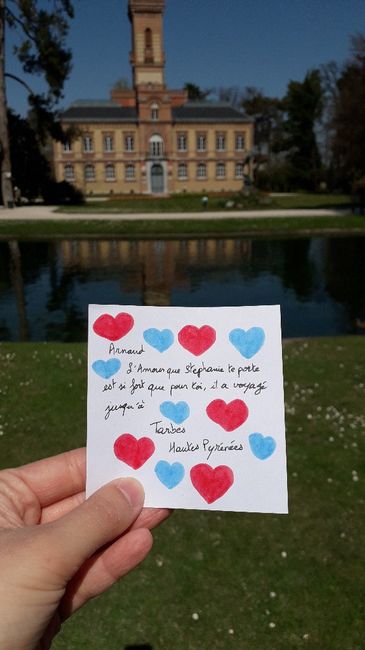 Arnaud
L'Amour que Stephanie te porte
est si fort que pour toi, il a voyagé
jusqu'à
Tarbes
Hautes Pyrénées